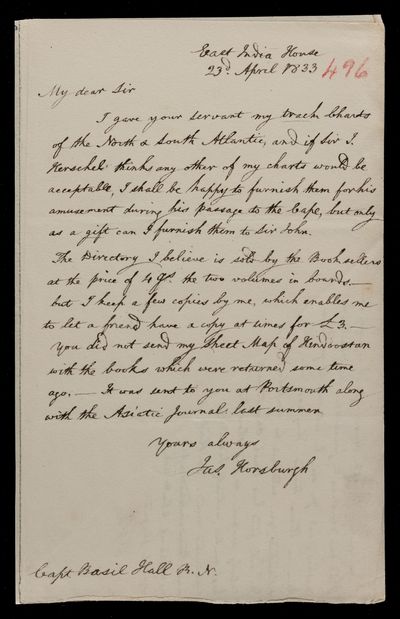 East India House
23d. April 1833
496
My dear Sir
I gave your servant my track Charts
of the North & South Atlantic, and if Sir J.
Herschel thinks any other of my charts would be
acceptable, I shall be happy to furnish them for his
amusement during his passage to the Cape, but only
as a gift can I furnish them to Sir John.
The Directory I believe is sold by the Booksellers
at the price of 4 Gs. the two volumes in boards.—
but I keep a few copies by me, which enables me
to let a friend have a copy at times for £3.—
You did not send my Sheet Map of Hindoostan
with the books which were returned some time
ago.— It was sent to you at Portsmouth along
with the Asiatic Journal last summer
Yours always
Jas. Horsburgh
Capt Basil Hall R. N.